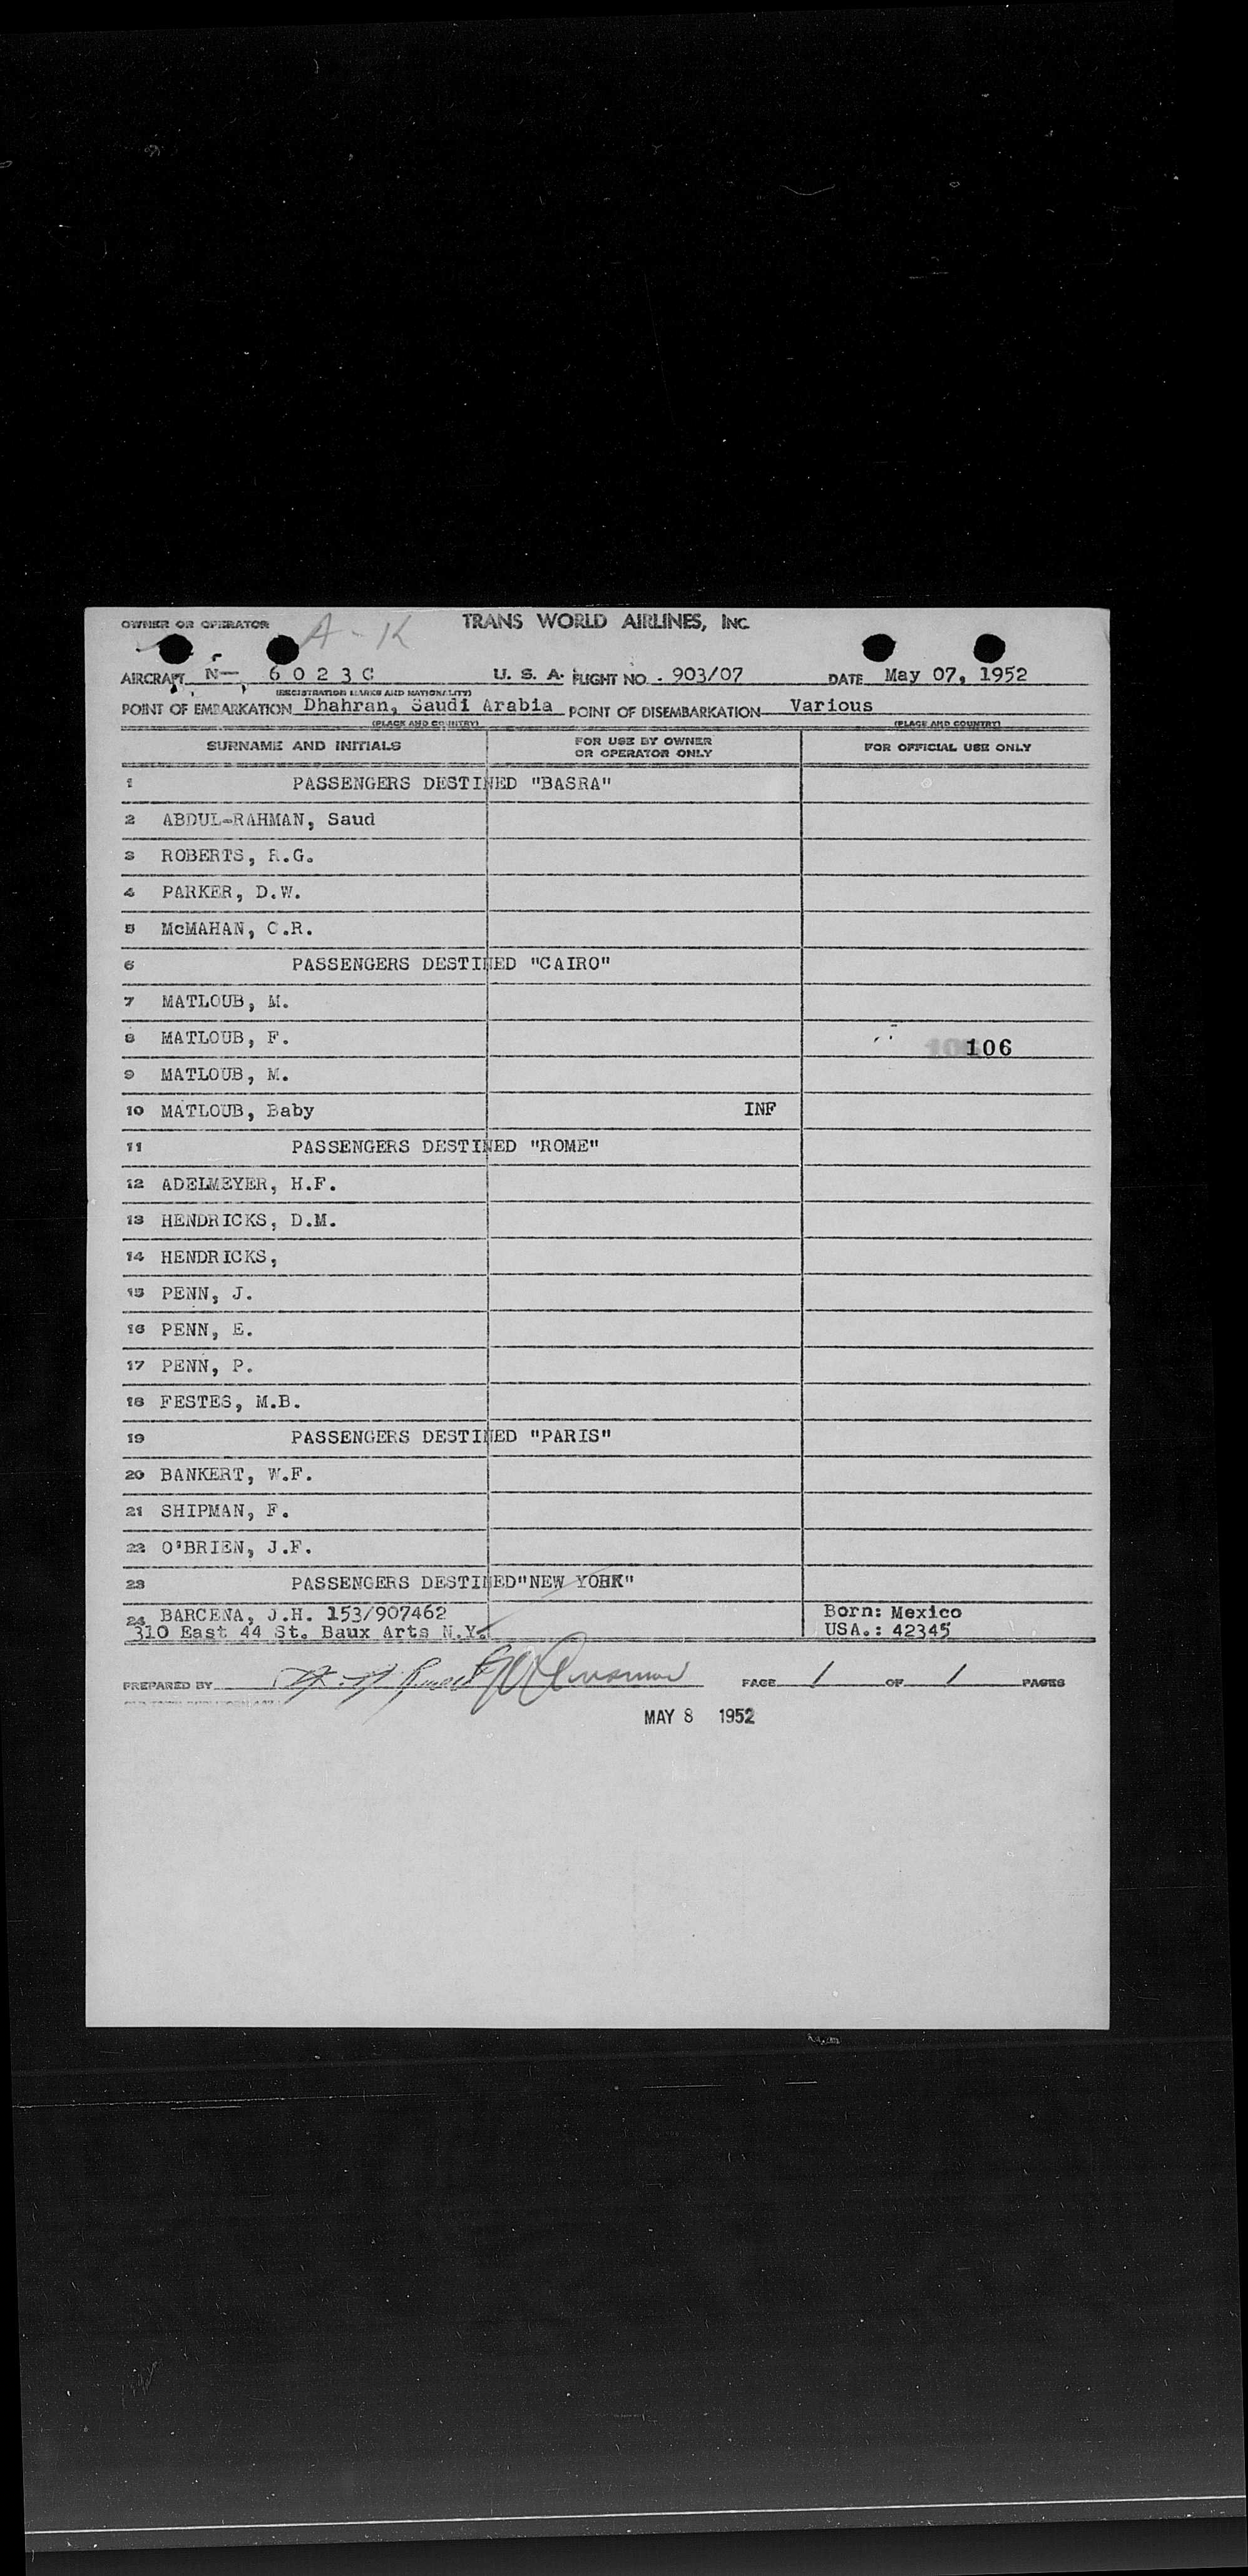 OWNER OR OPERATOR A - K TRANS WORLD AIRLINES, INC
AIRCRAFT N- 6 0 2 3 C U. S. A. FLIGHT NO. 903/07 DATE May 07, 1952
(REGISTRATION MARKS AND NATIONALITY)
POINT OF EMBARKATION Dhahran, Saudi Arabia POINT OF DISEMBARKATION Various
(PLACE AND COUNTRY) (PLACE AND COUNTRY)
SURNAME AND INITIALS FOR USE BY OWNER OR OPERATOR ONLY FOR OFFICIAL USE ONLY
1 PASSENGERS DESTINED "BASRA"
2 ABDUL-RAHMAN, Saud
3 ROBERTS, R.G.
4 PARKER, D.W.
5 McMAHAN, C.R.
6 PASSENGERS DESTINED "CAIRO"
7 MATLOUB, M.
8 MATLOUB, F. 106
9 MATLOUB, M.
10 MATLOUB, Baby INF
11 PASSENGERS DESTINED "ROME"
12 ADELMEYER, H.F.
13 HENDRICKS, D.M.
14 HENDRICKS,
15 PENN, J.
16 PENN, E.
17 PENN, P.
18 FESTES, M.B.
19 PASSENGERS DESTINED "PARIS"
20 BANKERT, W.F.
21 SHIPMAN, F.
22 O'BRIEN, J.F.
23 PASSENGERS DESTINED"NEW YORK"
24 BARCENA, J.H. 153/907462 Born: Mexico
310 East 44 St. Baux Arts N.Y. USA.: 42345
PREPARED BY PAGE 1 OF 1 PAGES
MAY 8 1952